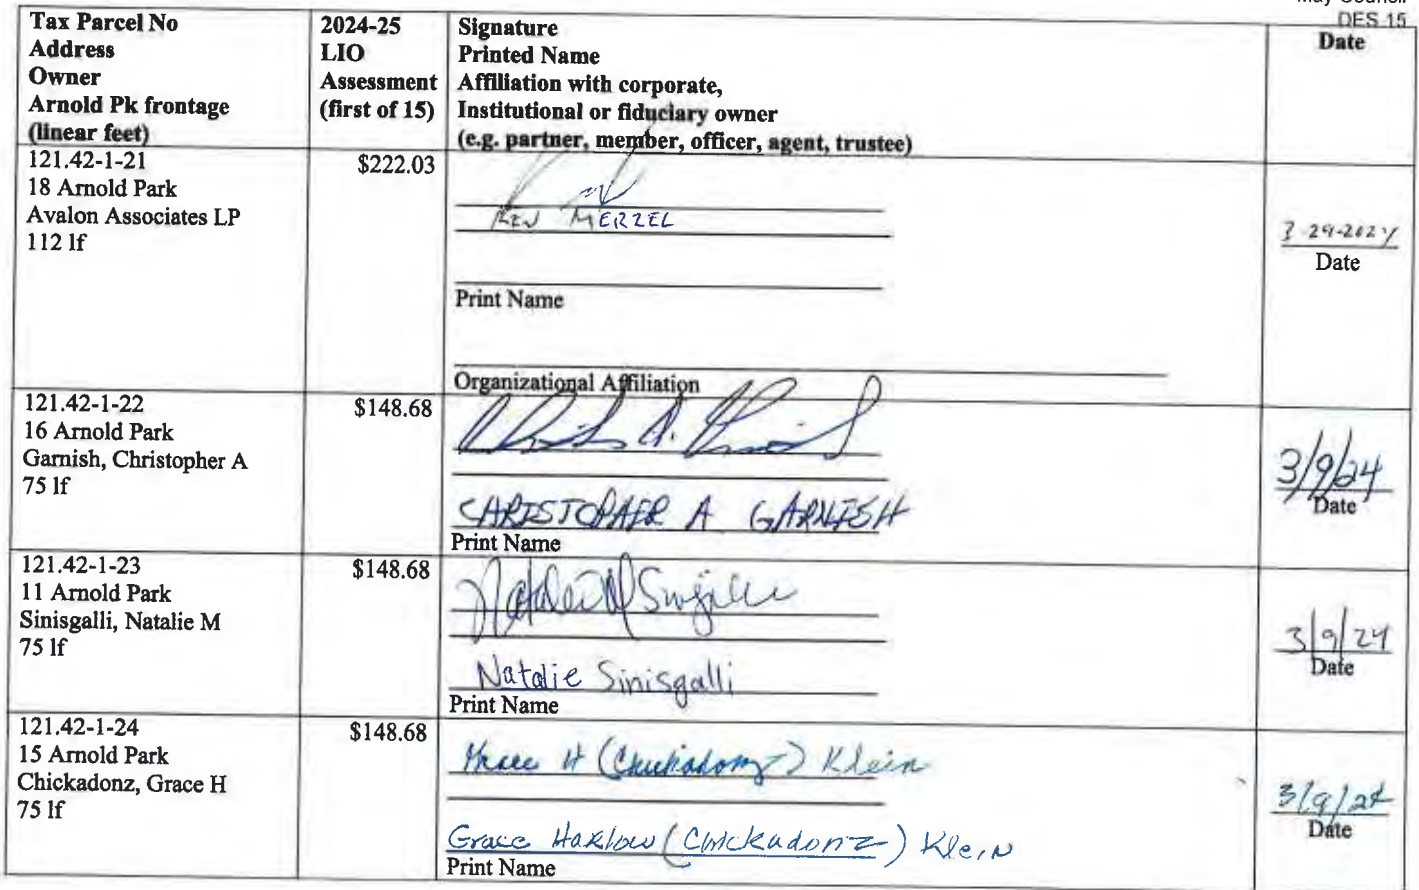 May Council
DES 15
Tax Parcel No
Address
Owner
Arnold Pk frontage
(linear feet)
2024-25
LIO
Assessment
(first of 15)
Signature
Printed Name
Affiliation with corporate,
Institutional or fiduciary owner
(e.g. partner, member, officer, agent, trustee)
Date
121.42-1-21
18 Arnold Park
Avalon Associates LP
112 lf
$222.03
MERZEL
Print Name
Organizational Affiliation
3-29-2024
Date
121.42-1-22
16 Arnold Park
Garnish, Christopher A
75 lf
$148.68
CHRISTOPHER A GARNISH
Print Name
3/9/24
Date
121.42-1-23
11 Arnold Park
Sinisgalli, Natalie M
75 lf
$148.68
Natalie Sinisgalli
Print Name
3/9/24
Date
121.42-1-24
15 Arnold Park
Chickadonz, Grace H
75 lf
$148.68
Grace H (Chickadonz) Klein
Grace Harlow (Chickadonz) Klein
Print Name
3/9/24
Date